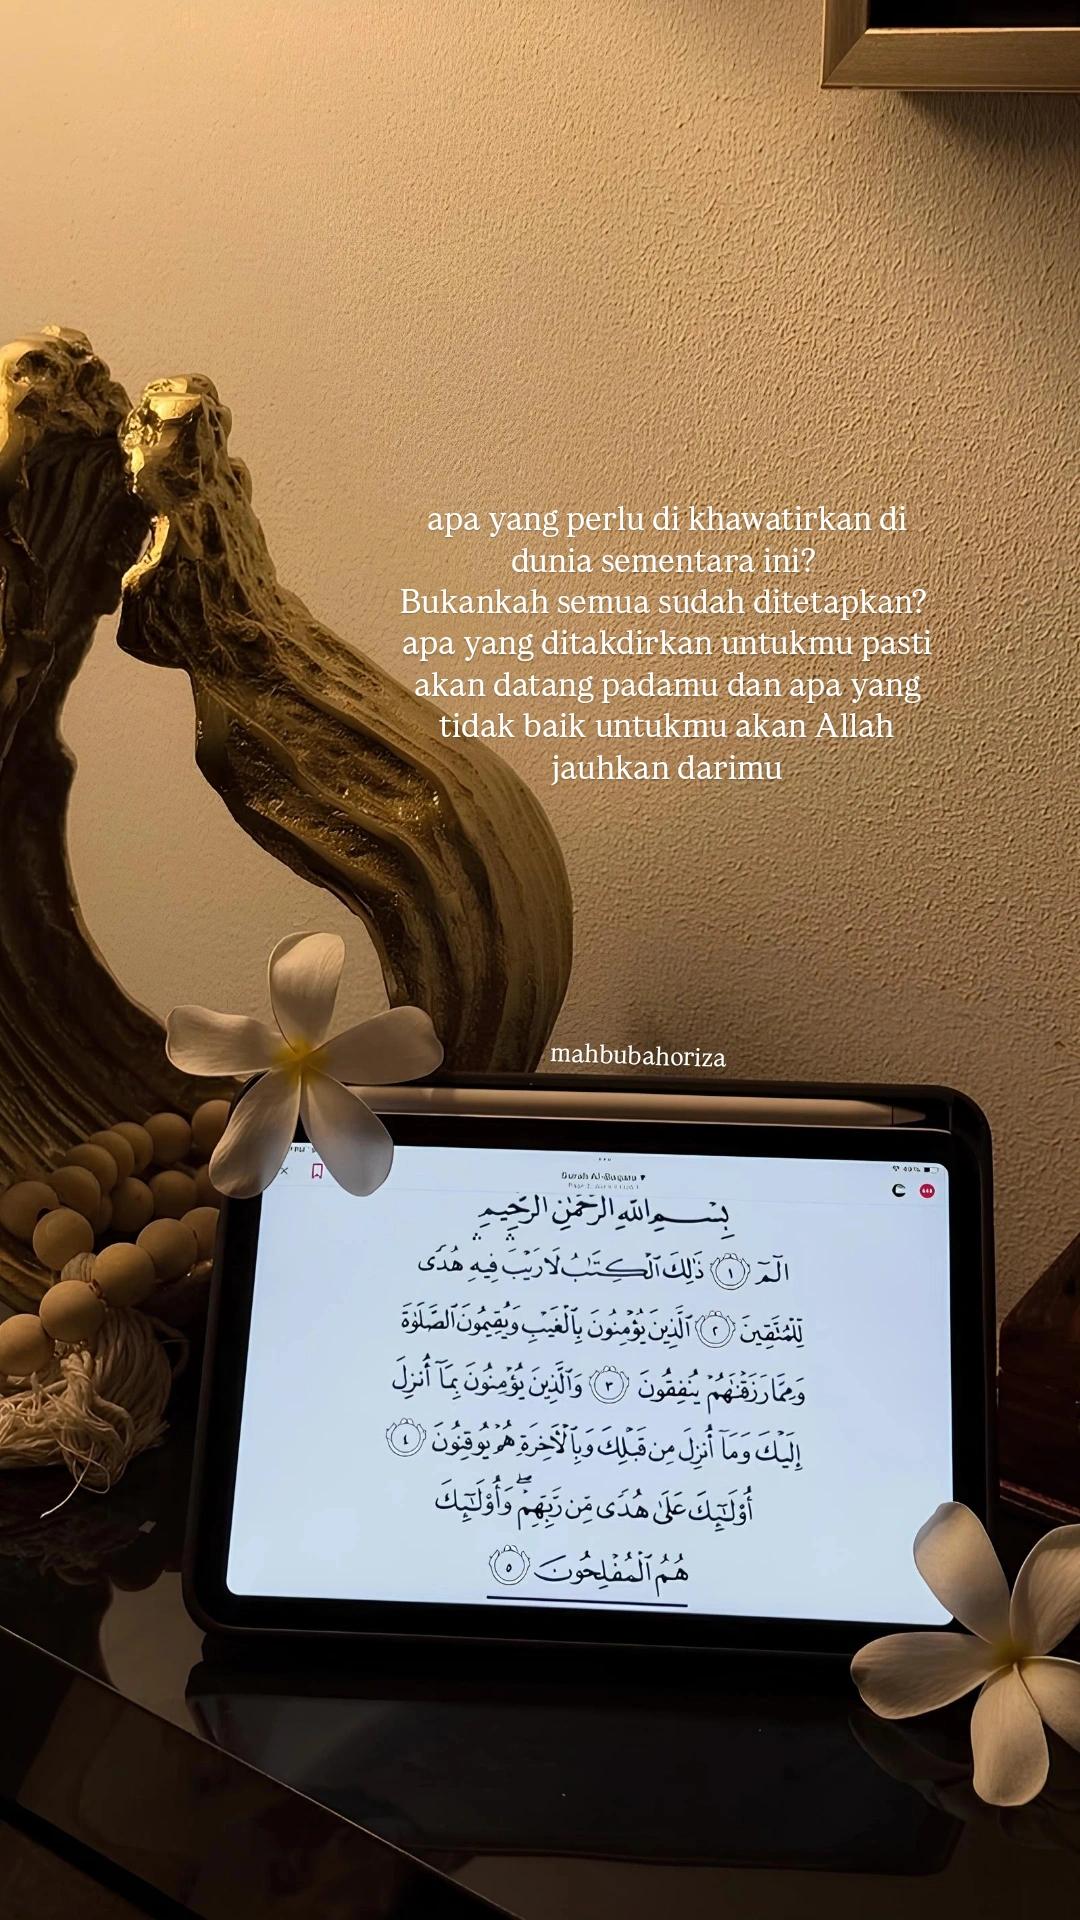 apa yang perlu di khawatirkan di
dunia sementara ini?
Bukankah semua sudah ditetapkan?
apa yang ditakdirkan untukmu pasti
akan datang padamu dan apa yang
tidak baik untukmu akan Allah
jauhkan darimu
mahbubahoriza
Surah Al-Baqara
بِسْمِ ٱللَّهِ ٱلرَّحْمَٰنِ ٱلرَّحِيمِ
الٓمٓ ١ ذَٰلِكَ ٱلْكِتَٰبُ لَا رَيْبَ ۛ فِيهِ ۛ هُدًى
لِّلْمُتَّقِينَ ٢ ٱلَّذِينَ يُؤْمِنُونَ بِٱلْغَيْبِ وَيُقِيمُونَ ٱلصَّلَوٰةَ
وَمِمَّا رَزَقْنَٰهُمْ يُنفِقُونَ ٣ وَٱلَّذِينَ يُؤْمِنُونَ بِمَآ أُنزِلَ
إِلَيْكَ وَمَآ أُنزِلَ مِن قَبْلِكَ وَبِٱلْءَاخِرَةِ هُمْ يُوقِنُونَ ٤
أُو۟لَٰٓئِكَ عَلَىٰ هُدًى مِّن رَّبِّهِمْ ۖ وَأُو۟لَٰٓئِكَ
هُمُ ٱلْمُفْلِحُونَ ٥